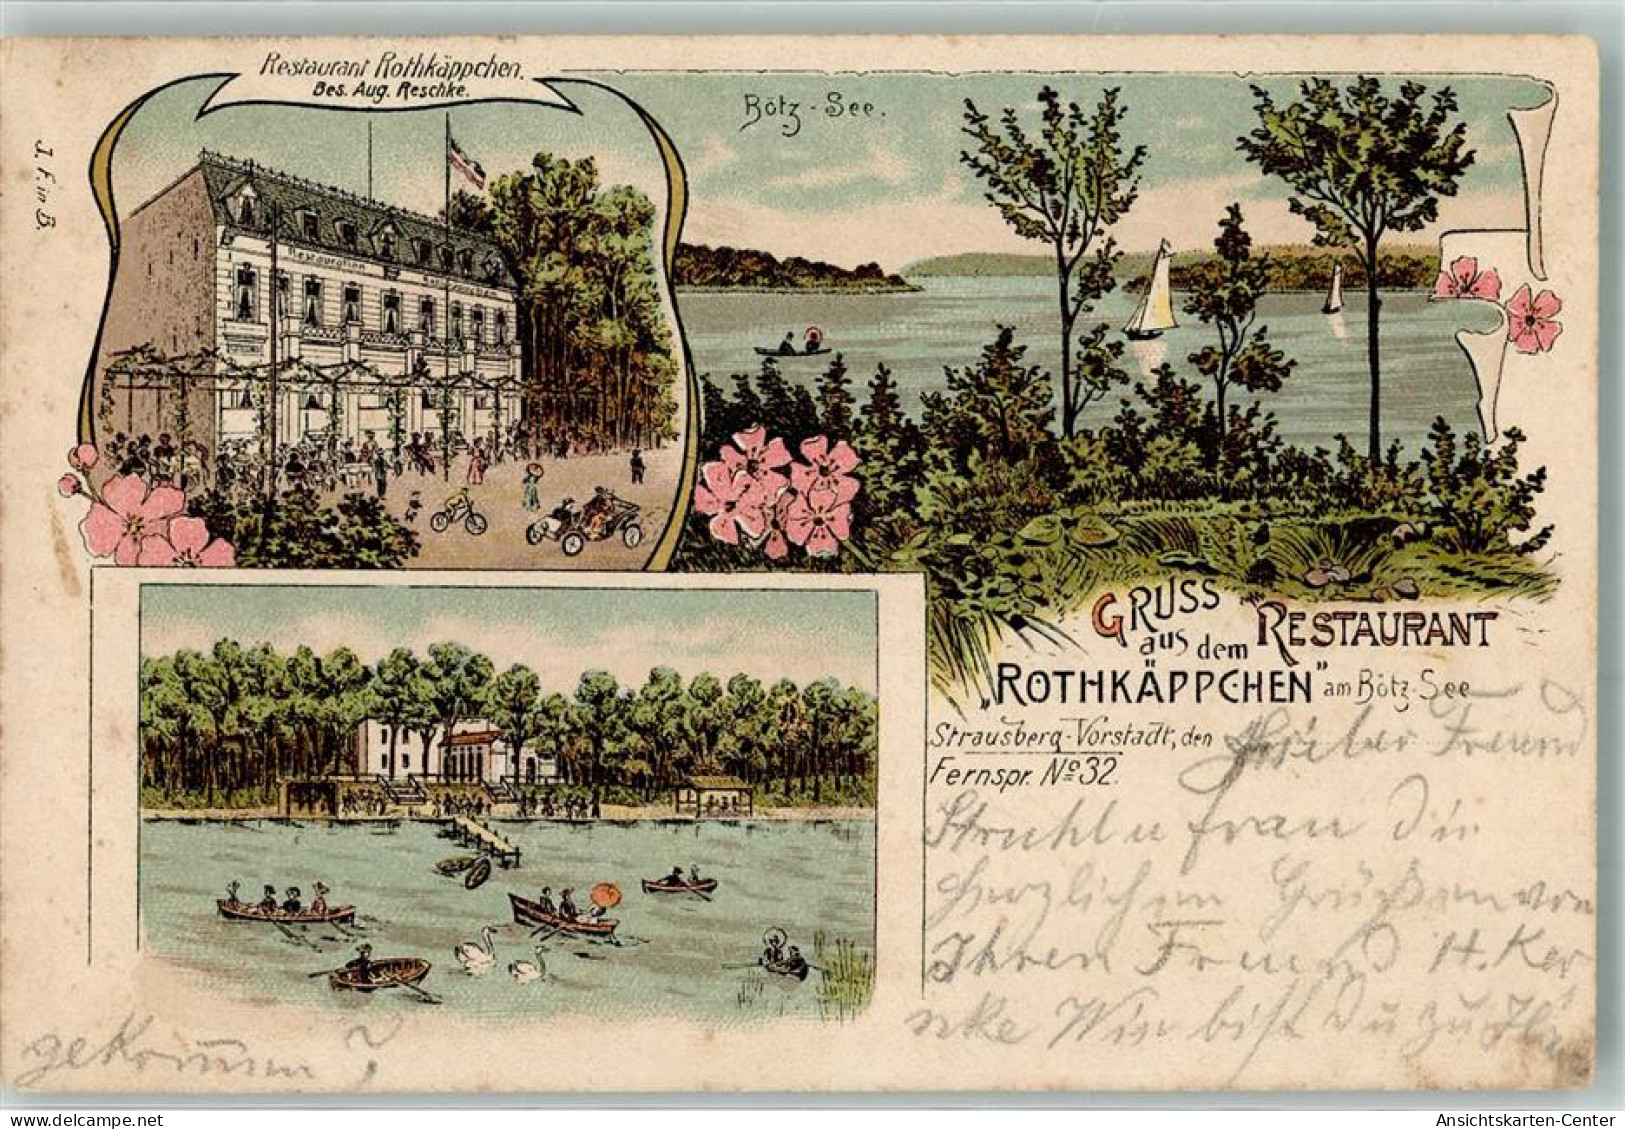 Restaurant Rothkäppchen.
Bes. Aug. Reschke.
J. F. in B.
Bötz-See.
Restauration
GRUSS
aus dem RESTAURANT
„ROTHKÄPPCHEN" am Bötz-See
Strausberg-Vorstadt, den
Fernspr. No 32.
Freund
Struhl u frau die
Herzlichen Grüßen von
Ihren Freund H. Ker
nke Wie bist du zu Ihr
gekommen?
Ansichtskarten-Center